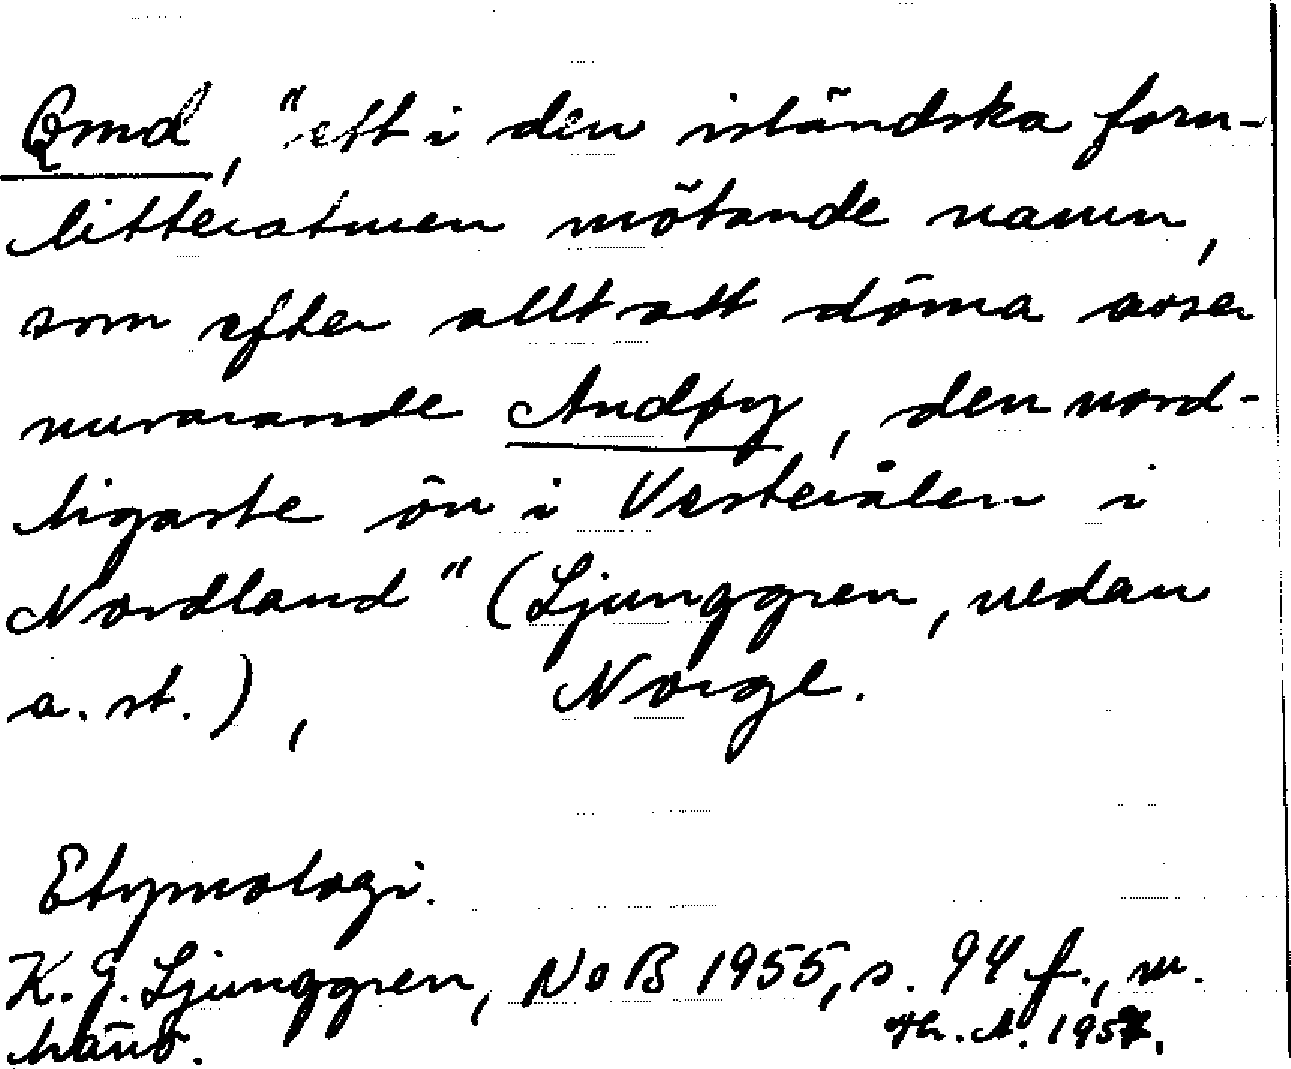 Ǫmd, "ett i den isländska forn-
litteraturen mötande namn,
som efter allt att döma avser
nuvarande Andøy, den nord-
ligaste ön i Vesterålen i
Nordland" (Ljunggren, nedan
a. st.), Norge.
Etymologi.
K. G. Ljunggren, NoB 1955, s. 94 f., m.
hänv. Th. A. 1957.